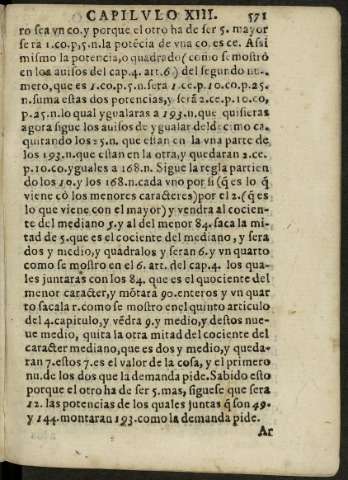 CAPILVLO XIII. 571
ro sea vn co.y porque el otro ha de ser 5. mayor
sera 1.co.p,5.n.la potēcia de vna co.es ce. Assi
mismo la potencia,o quadrado (como se mostró
en los auisos del cap.4. art.6) del segundo nu-
mero,que es 1.co.p.5.n.sera 1.ce.p.10.co.p.25.
n.suma estas dos potencias,y serā 2.ce.p.10.co,
p.25.n.lo qual ygualaras a 193.n.que quisieras
agora sigue los auisos de ygualar deldecimo ca.
quitando los 25.n. que estan en la vna parte de
los 193.n.que estan en la otra,y quedaran 2.ce.
p.10.co.yguales a 168.n. Sigue la regla partien
do los 10.y los 168.n.cada vno por si (q̄ es lo q̄
viene có los menores caracteres)por el 2.(q̄ es
lo que viene con el mayor) y vendra al cocien-
te del mediano 5.y al del menor 84.saca la mi-
tad de 5.que es el cociente del mediano, y sera
dos y medio,y quadralos y seran 6.y vn quarto
como se mostro en el 6. art. del cap.4. los qua-
les juntaras con los 84. que es el quociente del
menor caracter,y mōtará 90.enteros y vn quar
to sacala r.como se mostro enel quinto articulo
del 4.capitulo,y vēdrá 9.y medio,y destos nue-
ue medio, quita la otra mitad del cociente del
caracter mediano,que es dos y medio,y queda-
ran 7.estos 7.es el valor de la cosa, y el primero
nu.de los dos que la demanda pide.Sabido esto
porque el otro ha de ser 5.mas, siguese que sera
12. las potencias de los quales juntas q̄ son 49.
y 144.montaran 193.como la demanda pide.
Ar